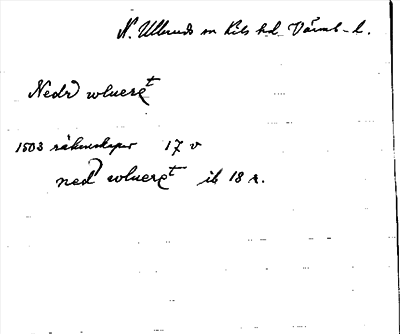 N. Ulleruds sn Kils hd. Värml. l.
Nedr wlueret
1503 räkenskaper 17 v
ned wlueret ib 18 r.